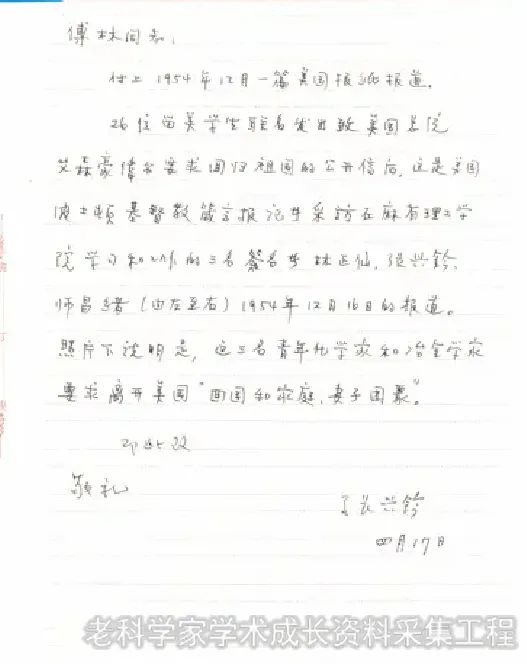 傅林同志,
付上1954年12月一篇美国报纸报道。
26位留美学生联名发出致美国总统
艾森豪偉尔要求回归祖国的公开信后,这是美国
波士顿基督教箴言报记者采访在麻省理工学
院学习和工作的三名签名者林正仙,张兴钤,
师昌绪(由左至右)1954年12月16日的报道。
照片下说明是,这三名青年化学家和冶金学家
要求离开美国"回国和家庭,妻子团聚"。
即此致
敬礼
张兴钤
四月17日
老科学家学术成长资料采集工程